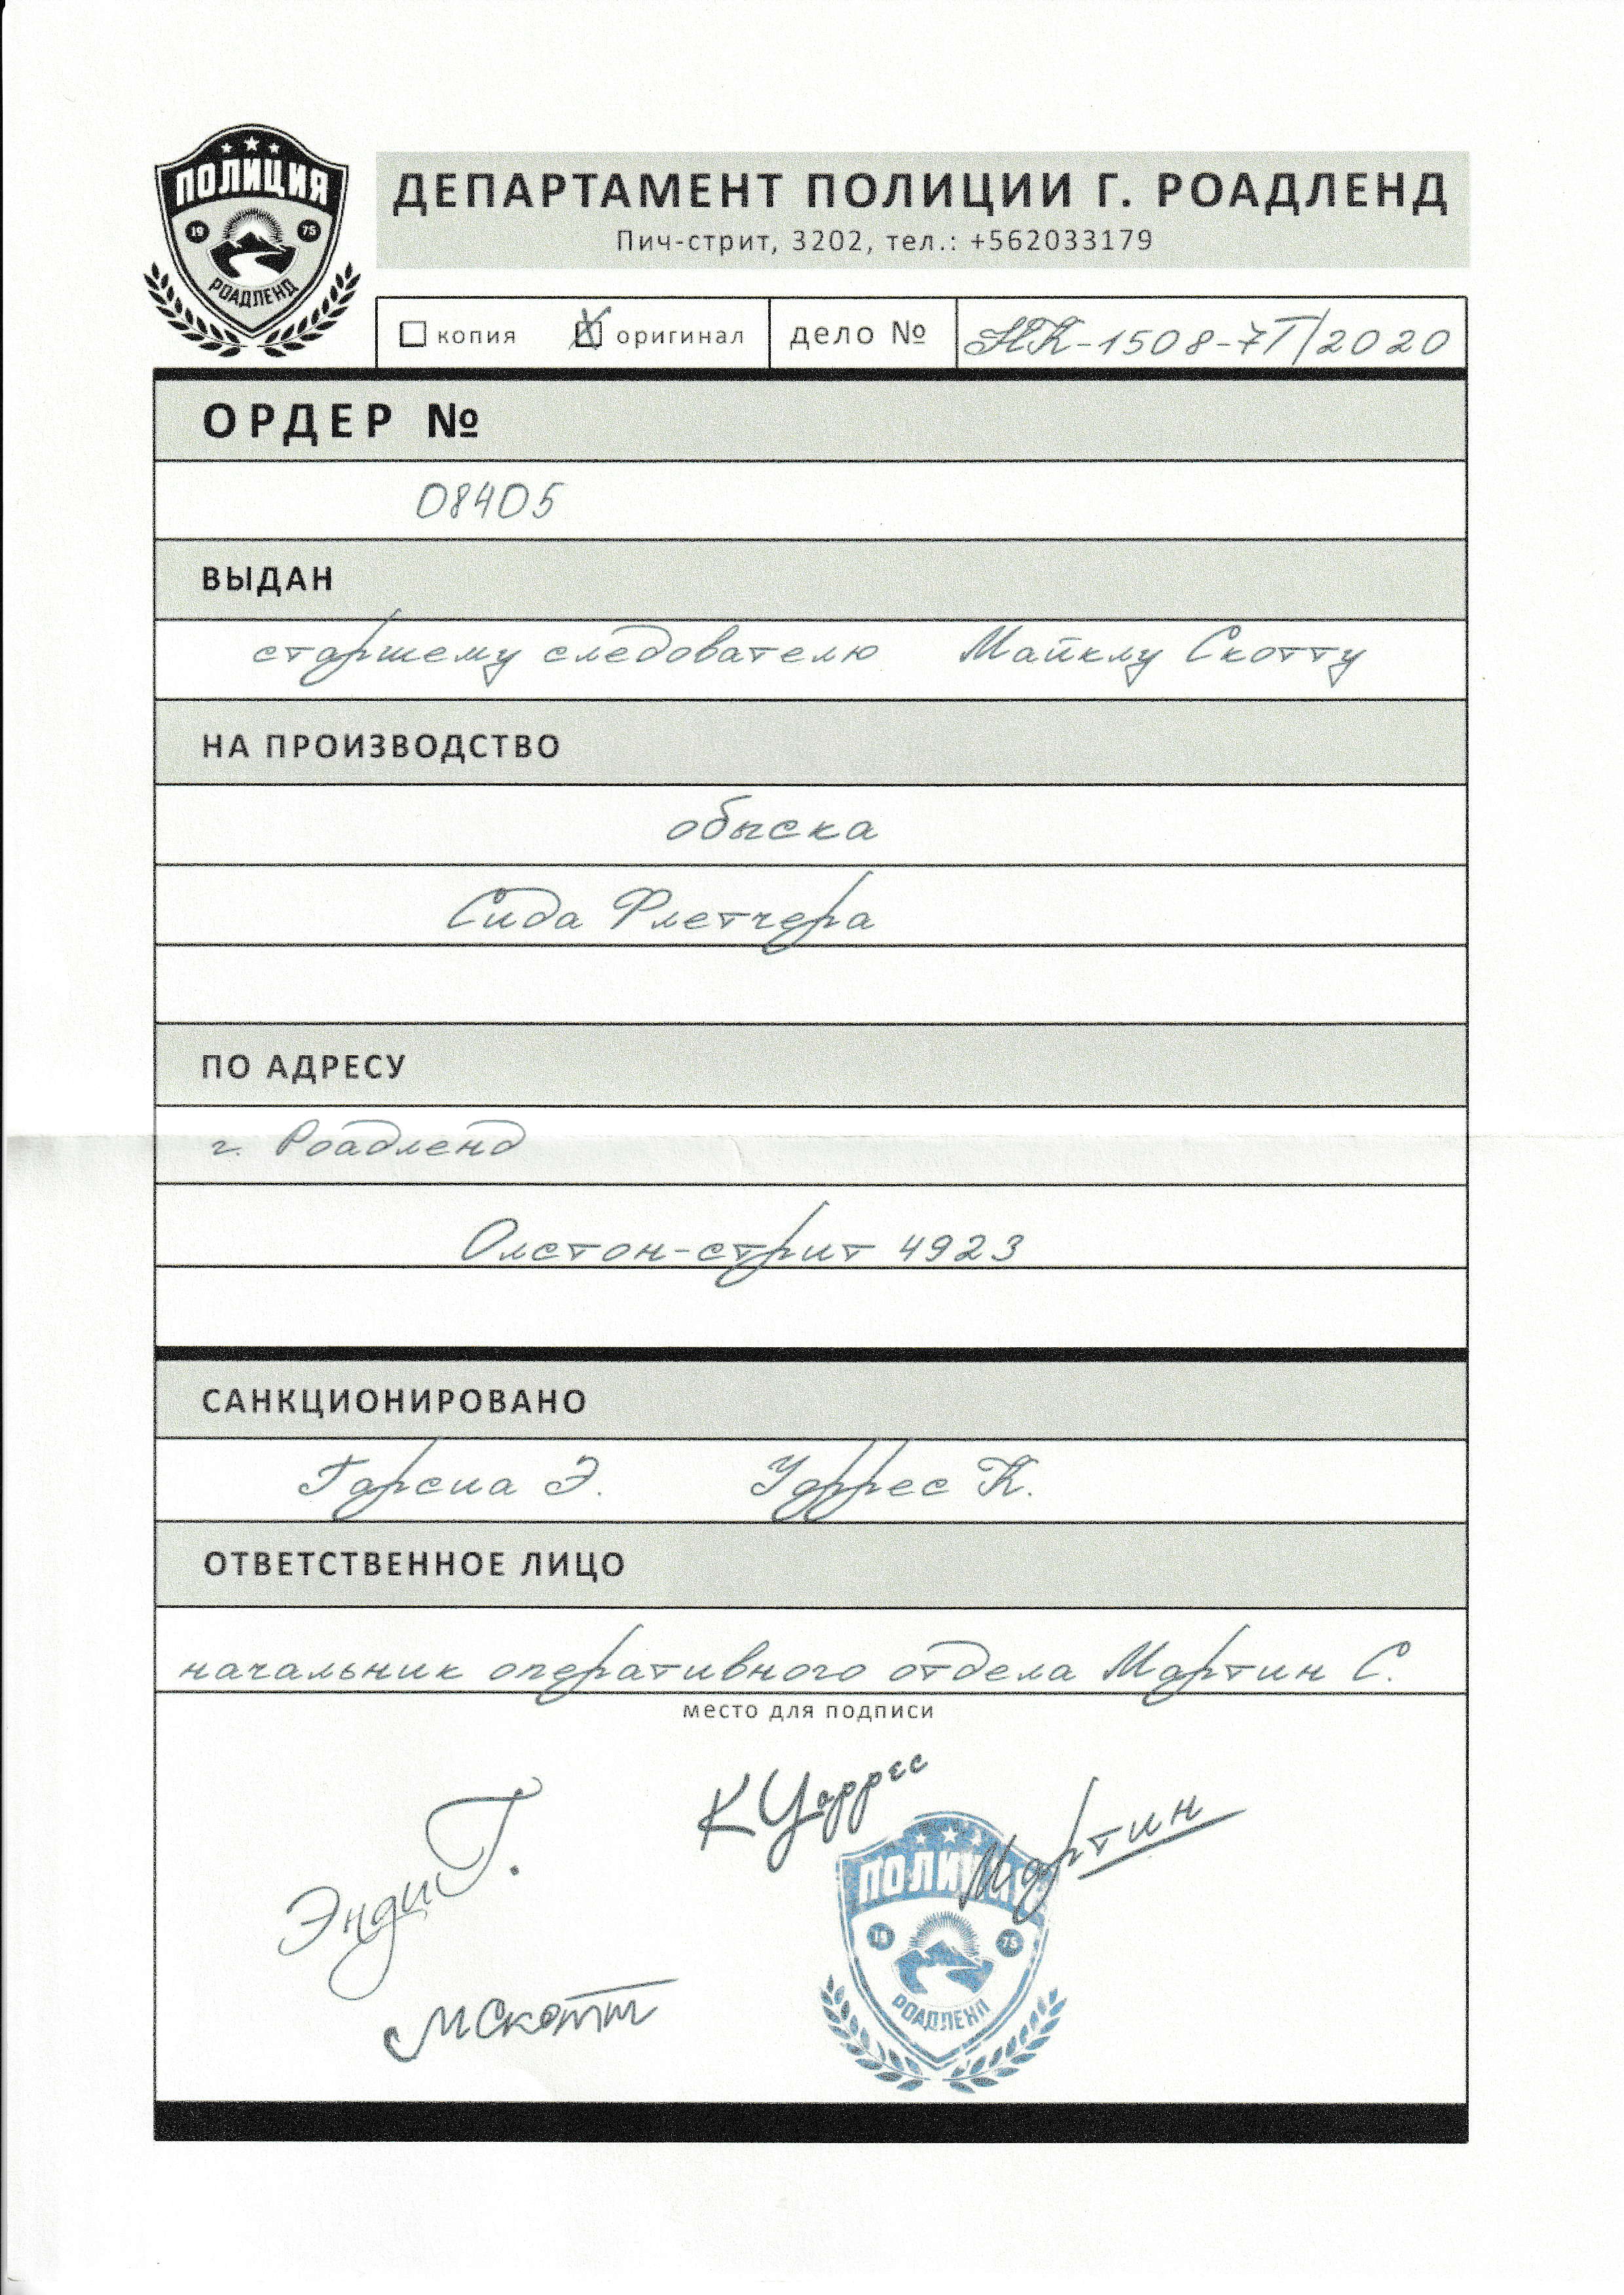 ПОЛИЦИЯ
19 75
РОАДЛЕНД
ДЕПАРТАМЕНТ ПОЛИЦИИ Г. РОАДЛЕНД
Пич-стрит, 3202, тел.: +562033179
копия оригинал дело № НК-1508-7Т/2020
ОРДЕР №
08405
ВЫДАН
старшему следователю Майклу Скотту
НА ПРОИЗВОДСТВО
обыска
Сида Флетчера
ПО АДРЕСУ
г. Роадленд
Олстон-стрит 4923
САНКЦИОНИРОВАНО
Гарсиа Э. Уоррес К.
ОТВЕТСТВЕННОЕ ЛИЦО
начальник оперативного отдела Мартин С.
место для подписи
К Уоррес
Мартин
Энди Г.
МСкотт
ПОЛИЦИЯ
19 75
РОАДЛЕНД